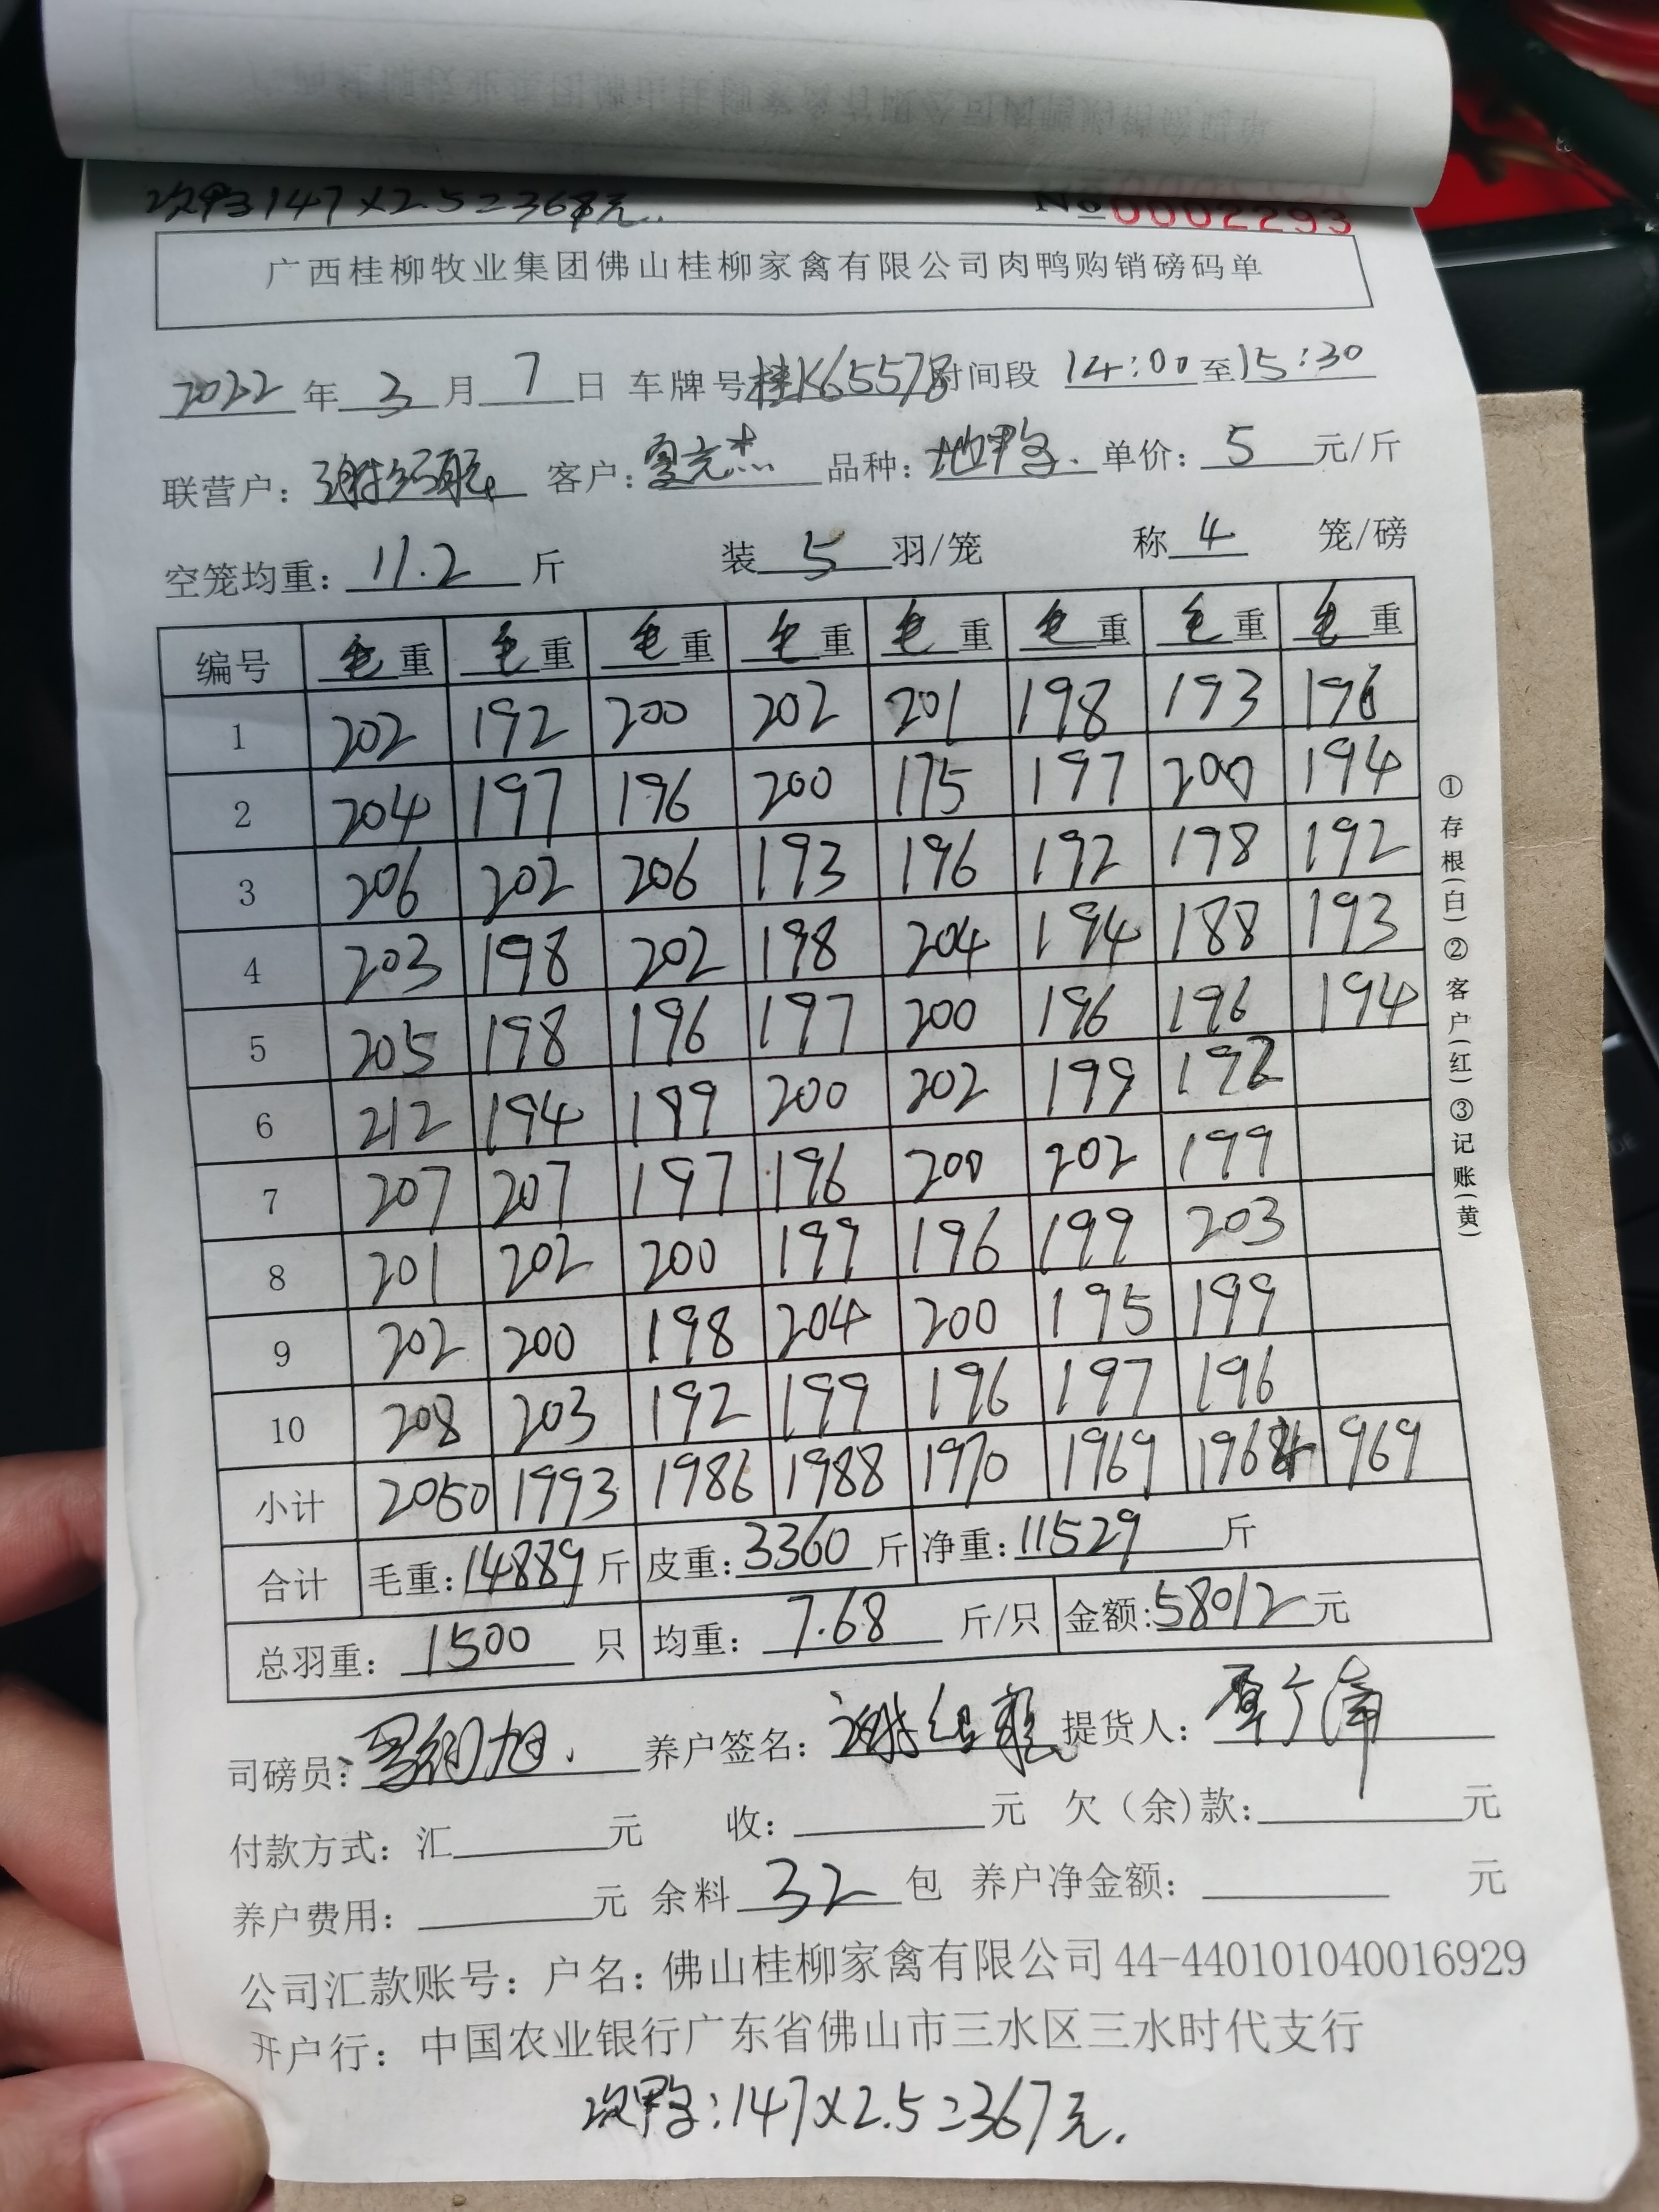 次鸭147×2.5=368元.
No 0002293
广西桂柳牧业集团佛山桂柳家禽有限公司肉鸭购销磅码单
2022年3月7日 车牌号桂K65578时间段 14:00至15:30
联营户: 客户:夏克杰 品种:地鸭. 单价:5元/斤
空笼均重:11.2斤 装5羽/笼 称4笼/磅
编号 毛重 毛重 毛重 毛重 毛重 毛重 毛重 毛重
1 202 192 200 202 201 198 193 196
2 204 197 196 200 175 197 200 194
3 206 202 206 193 196 192 198 192
4 203 198 202 198 204 194 188 193
5 205 198 196 197 200 196 196 194
6 212 194 199 200 202 199 192
7 207 207 197 196 200 202 199
8 201 202 200 199 196 199 203
9 202 200 198 204 200 195 199
10 208 203 192 199 196 197 196
小计 2050 1993 1986 1988 1970 1969 1964 969
合计 毛重:14889斤 皮重:3360斤 净重:11529斤
总羽重:1500只 均重:7.68斤/只 金额:58012元
司磅员: 养户签名: 提货人:
付款方式:汇 元 收: 元 欠(余)款: 元
养户费用: 元 余料32包 养户净金额: 元
公司汇款账号:户名:佛山桂柳家禽有限公司 44-440101040016929
开户行:中国农业银行广东省佛山市三水区三水时代支行
次鸭:147×2.5=367元.
①存根(白)②客户(红)③记账(黄)